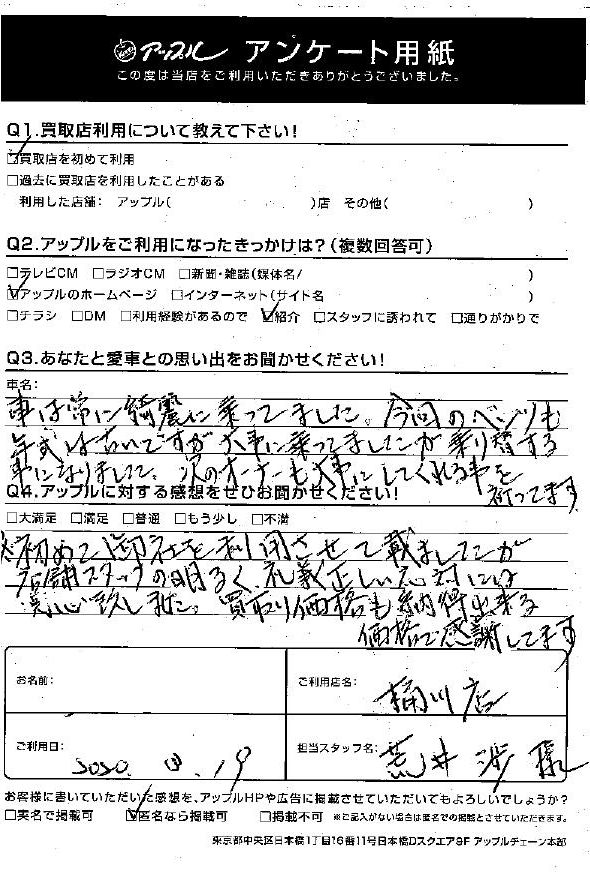 アップル アンケート用紙
この度は当店をご利用いただきありがとうございました。
Q1.買取店利用について教えて下さい!
☑買取店を初めて利用
□過去に買取店を利用したことがある
利用した店舗: アップル( )店 その他( )
Q2.アップルをご利用になったきっかけは?(複数回答可)
□テレビCM □ラジオCM □新聞・雑誌(媒体名/ )
☑アップルのホームページ □インターネット(サイト名 )
□チラシ □DM □利用経験があるので ☑紹介 □スタッフに誘われて □通りがかりで
Q3.あなたと愛車との思い出をお聞かせください!
車名:
車は常に綺麗に乗ってました。今回のベンツも
年式は古いですが大事に乗ってましたが乗り替する
事になりました。次のオーナーも大事にしてくれる事を
祈ってます
Q4.アップルに対する感想をぜひお聞かせください!
□大満足 □満足 □普通 □もう少し □不満
初めて御社を利用させて戴ましたが
店舗スタッフの明るく、礼義正しい応対には
感心致しました。買取り価格も納得出来る
価格で感謝してます
お名前:
ご利用店名: 桶川店
ご利用日: 2020. 19
担当スタッフ名: 荒井 渉 様
お客様に書いていただいた感想を、アップルHPや広告に掲載させていただいてもよろしいでしょうか?
□実名で掲載可 ☑匿名なら掲載可 □掲載不可 ※ご記入がない場合は匿名での掲載とさせていただきます。
東京都中央区日本橋1丁目16番11号日本橋Dスクエア9F アップルチェーン本部